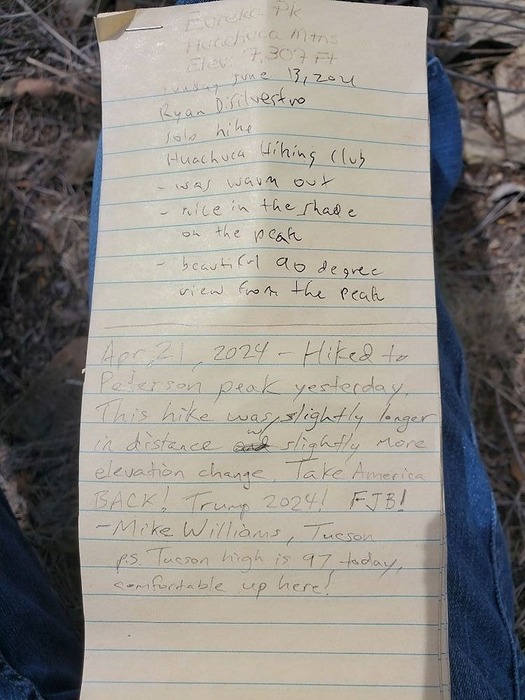 Eureka Pk
Huachuca Mtns
Elev: 7,307 Ft
June 13, 2021
Ryan DiSilvestro
solo hike
Huachuca Hiking Club
- was warm out
- nice in the shade
on the peak
- beautiful 90 degree
view from the peak
Apr, 21, 2024 - Hiked to
Peterson peak yesterday.
This hike was slightly longer
in distance w/ slightly more
elevation change. Take America
BACK! Trump 2024! FJB!
- Mike Williams, Tucson
p.s. Tucson high is 97 today,
comfortable up here!